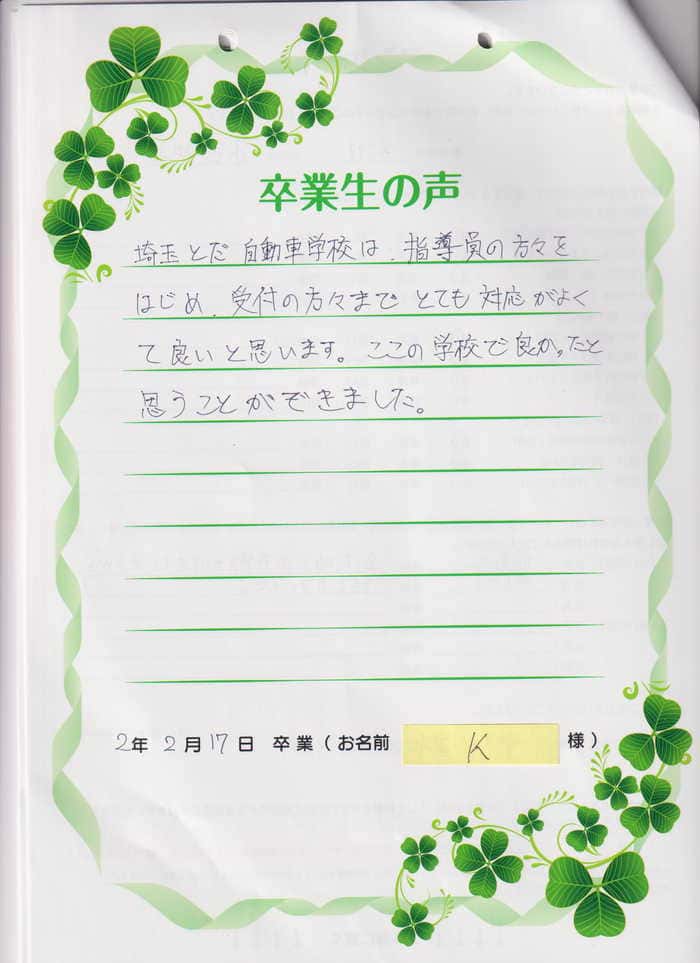 卒業生の声
埼玉とだ自動車学校は、指導員の方々を
はじめ、受付の方々までとても対応がよく
て良いと思います。ここの学校で良かったと
思うことができました。
2年 2月17日 卒業(お名前 K 様)